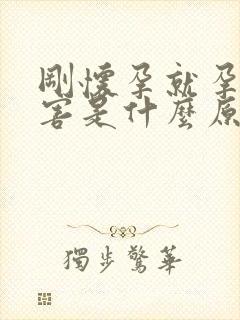 剛懷孕就孕
害是什麼原
獨步驚華